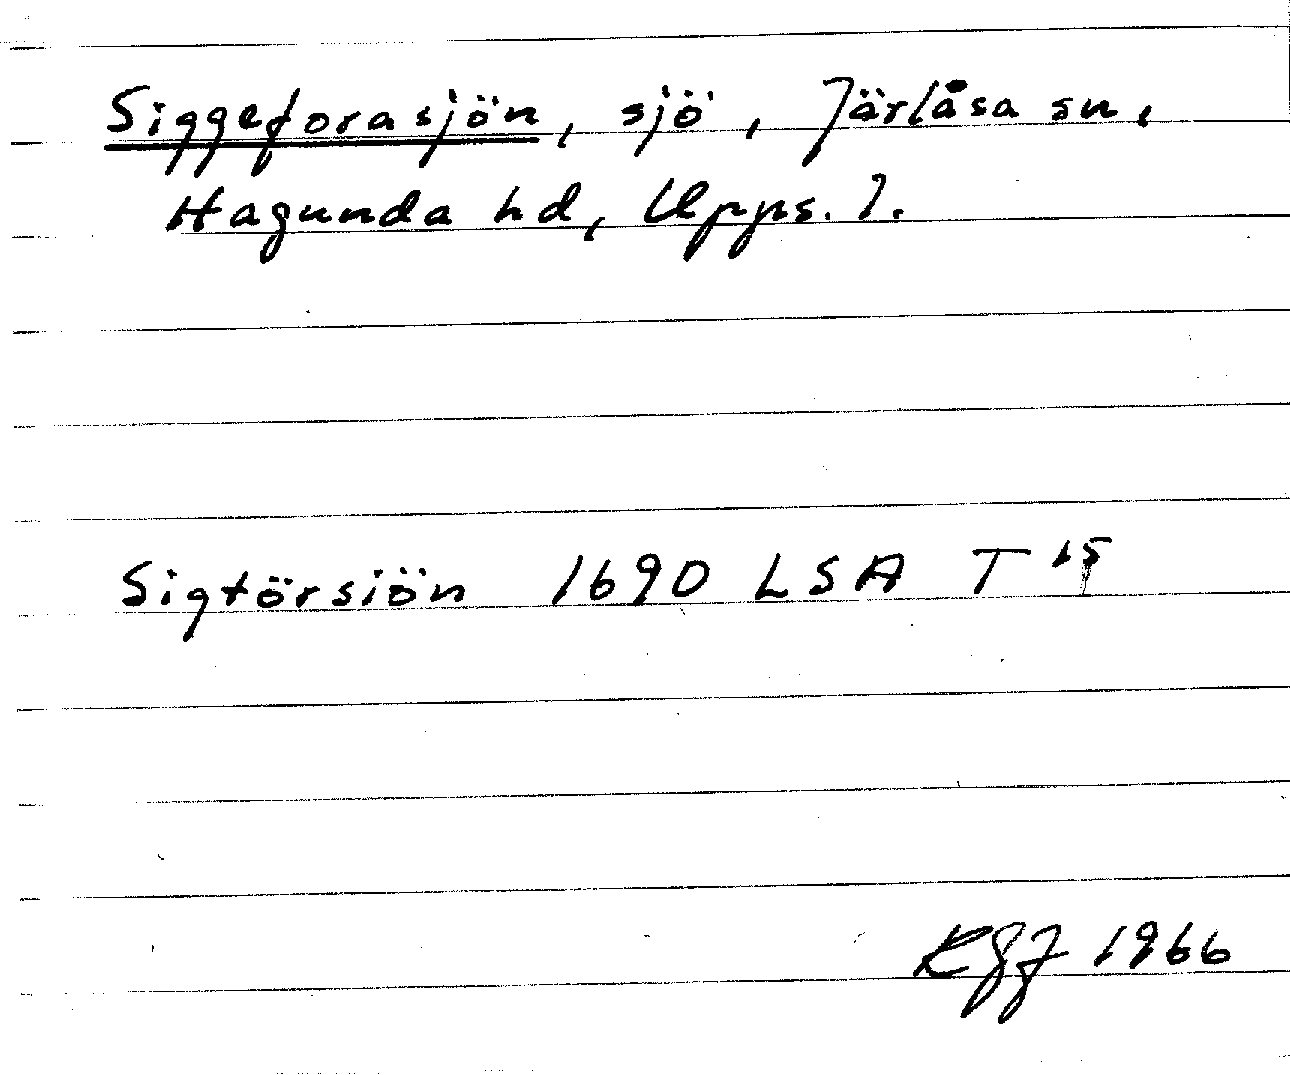 Siggeforasjön, sjö, Järlåsa sn,
Hagunda hd, Upps. l.
Sigtörsiön 1690 LSA T 15
1966